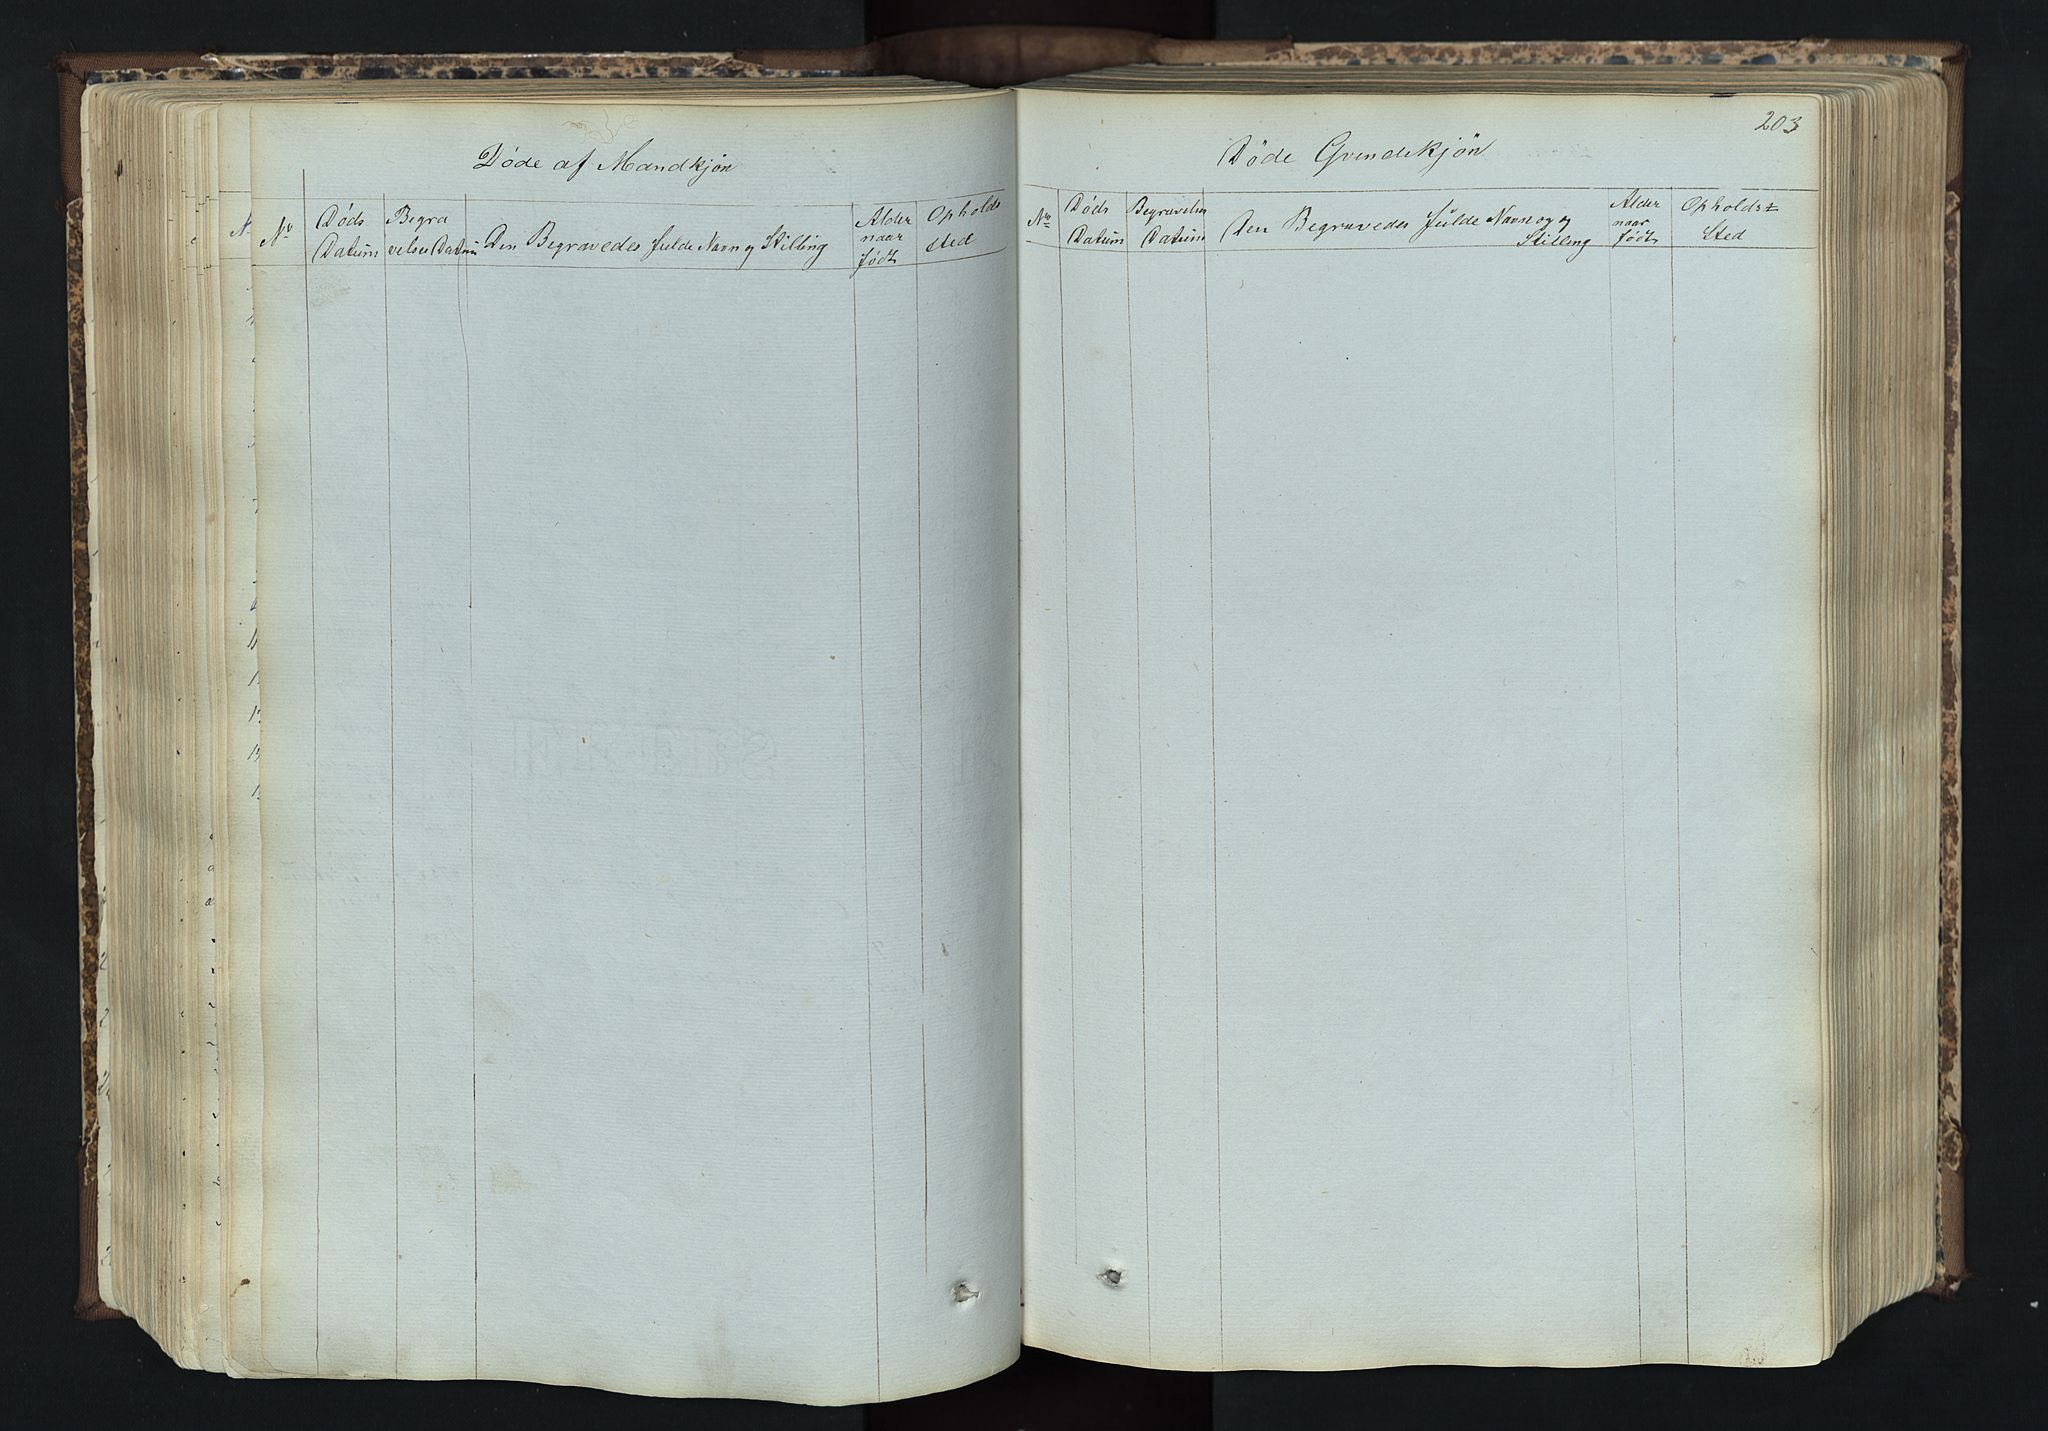 Døde af Mandkjøn
Nr
Døds
Datum
Begra
velses Datum
Den Begravedes fulde Navn og Stilling
Alder
naar
født
Opholds
sted
203
Døde Qvindekjön
Nr
Døds
Datum
Begravelses
Datum
Den Begravedes fulde Navn og og
Stilling
Alder
naar
födt
Opholds
sted